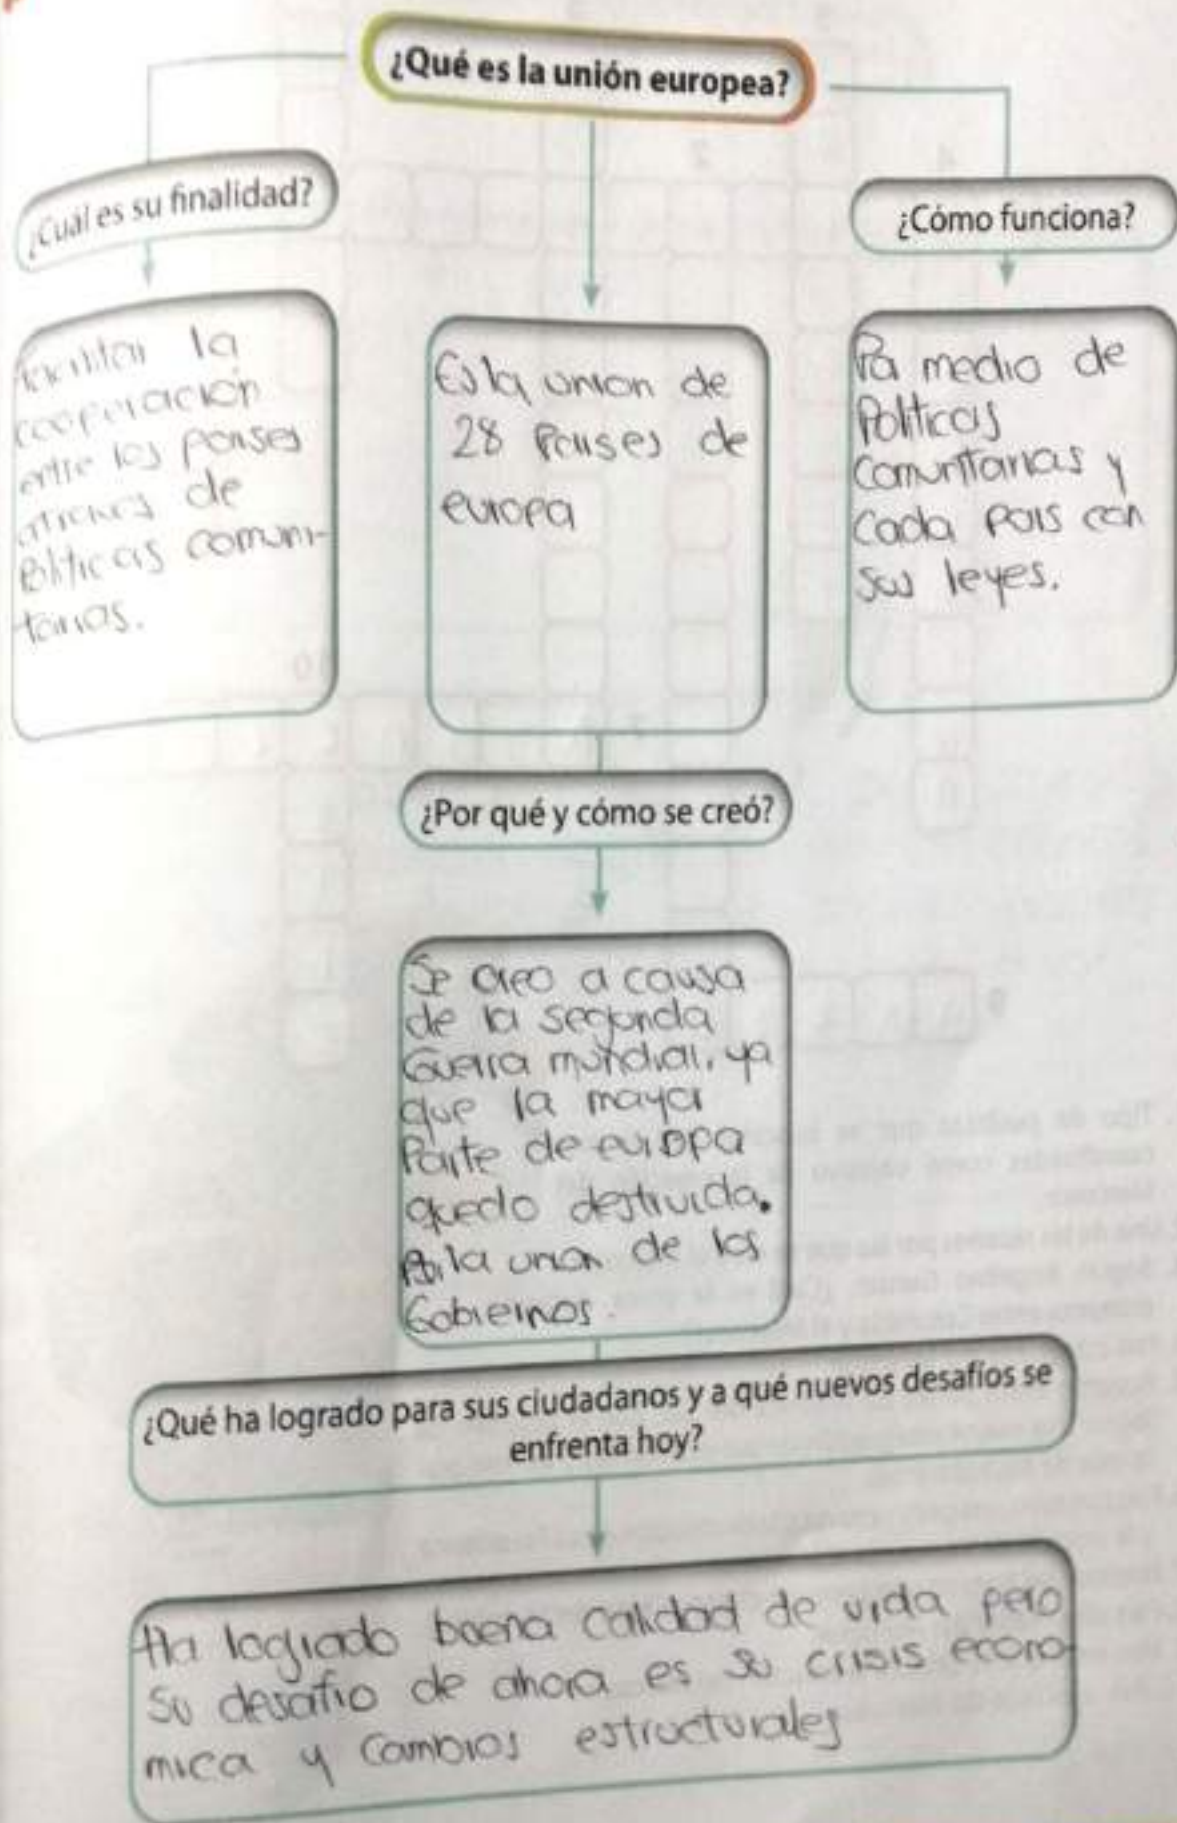 ¿Qué es la unión europea?
¿Cuál es su finalidad?
la
cooperación
entre los paises
de
Politicas comuni-
tarias.
Es la union de
28 Paises de
europa
¿Cómo funciona?
Por medio de
Politicas
Comunitarias y
Cada Pais con
sus leyes.
¿Por qué y cómo se creó?
Se creo a causa
de la segunda
Guerra mundial, ya
que la mayor
Parte de europa
quedo destruida.
Por la union de los
Gobiernos.
¿Qué ha logrado para sus ciudadanos y a qué nuevos desafíos se
enfrenta hoy?
Ha logrado buena calidad de vida pero
Su desafio de ahora es su crisis econo
mica y Cambios estructurales